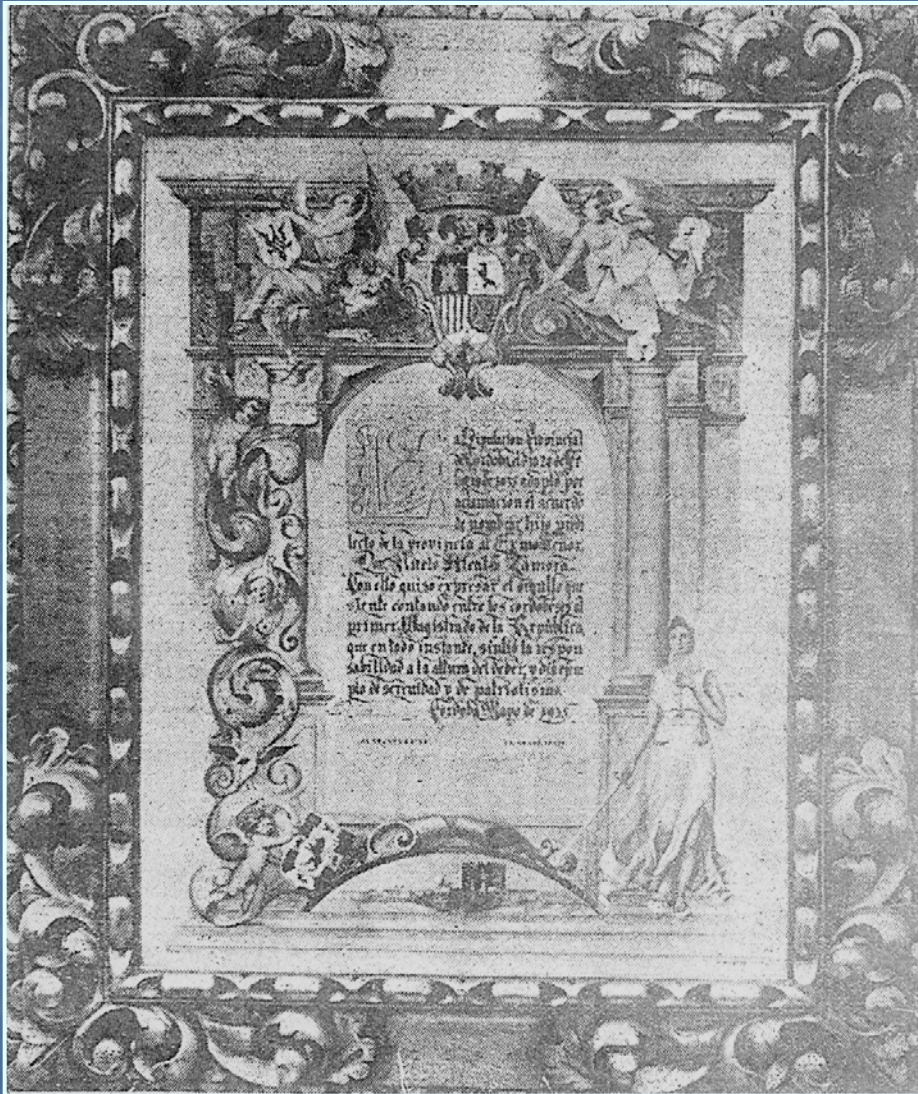 La Diputacion Provincial
de Cordoba, el dia 20 de
de 1935 adoptó por
aclamación el acuerdo
de nombrar hijo predi
lecto de la provincia al Exmo Señor
Don Niceto Alcalá Zamora.
Con ello quiso expresar el orgullo que
siente contando entre los cordobeses al
primer Magistrado de la República,
que en todo instante, sintió la respon
sabilidad a la altura del deber, y dió ejem
plo de serenidad y de patriotismo.
Cordoba Mayo de 1935